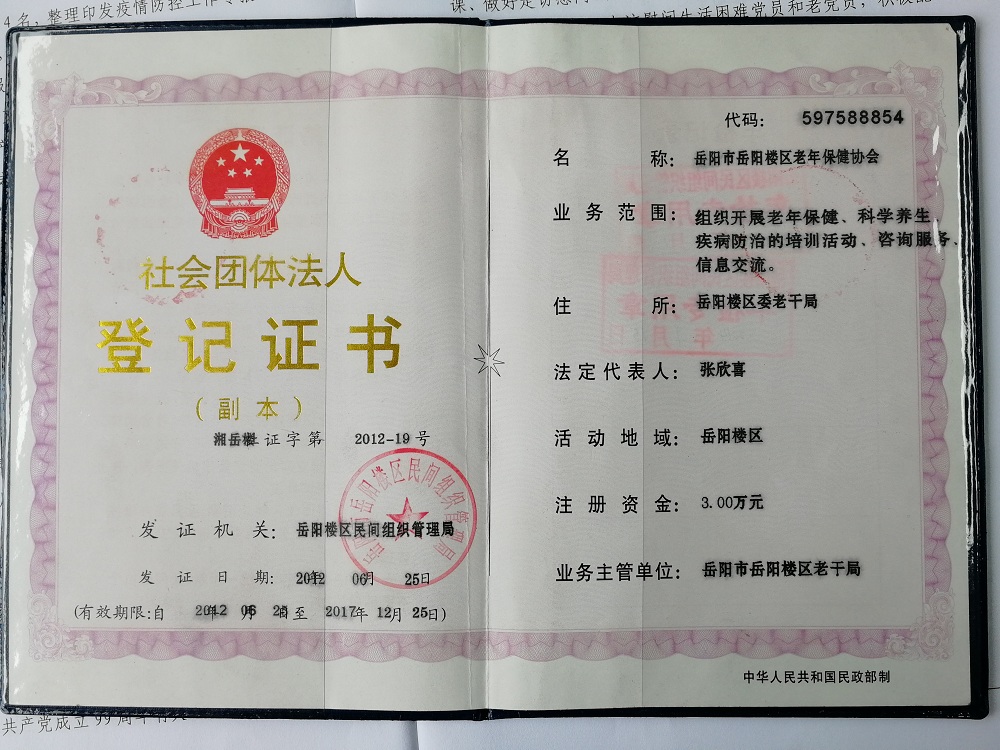 4名，整理印发疫情防控工作专报
社会团体法人
登记证书
（副本）
湘岳楼社证字第 2012-19号
发证机关：岳阳楼区民间组织管理局
发证日期：2012年 06月 25日
(有效期限:自 2012年 06月 25日至 2017年 12月 25日)
代码：597588854
名称：岳阳市岳阳楼区老年保健协会
业务范围：组织开展老年保健、科学养生、
疾病防治的培训活动、咨询服务、
信息交流。
住所：岳阳楼区委老干局
法定代表人：张欣喜
活动地域：岳阳楼区
注册资金：3.00万元
业务主管单位：岳阳市岳阳楼区老干局
中华人民共和国民政部制
共产党成立99周年